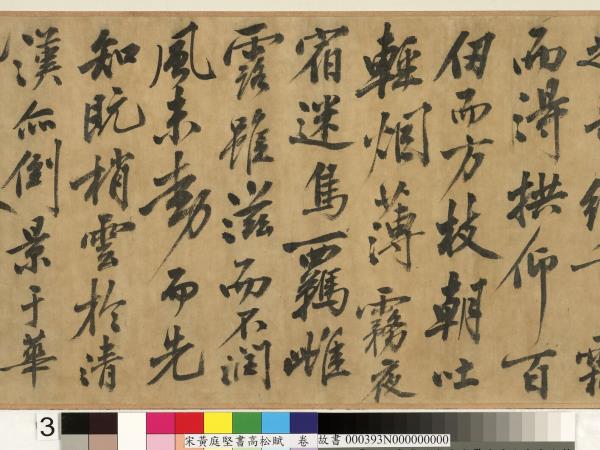 而得拱仰百
仞而方枝朝吐
輕烟薄霧夜
宿迷鳥羈雌
露雖滋而不潤
風未動而先
知既梢雲於清
漢亦倒景于華
3
宋黃庭堅書高松賦 卷 故書 000393N000000000